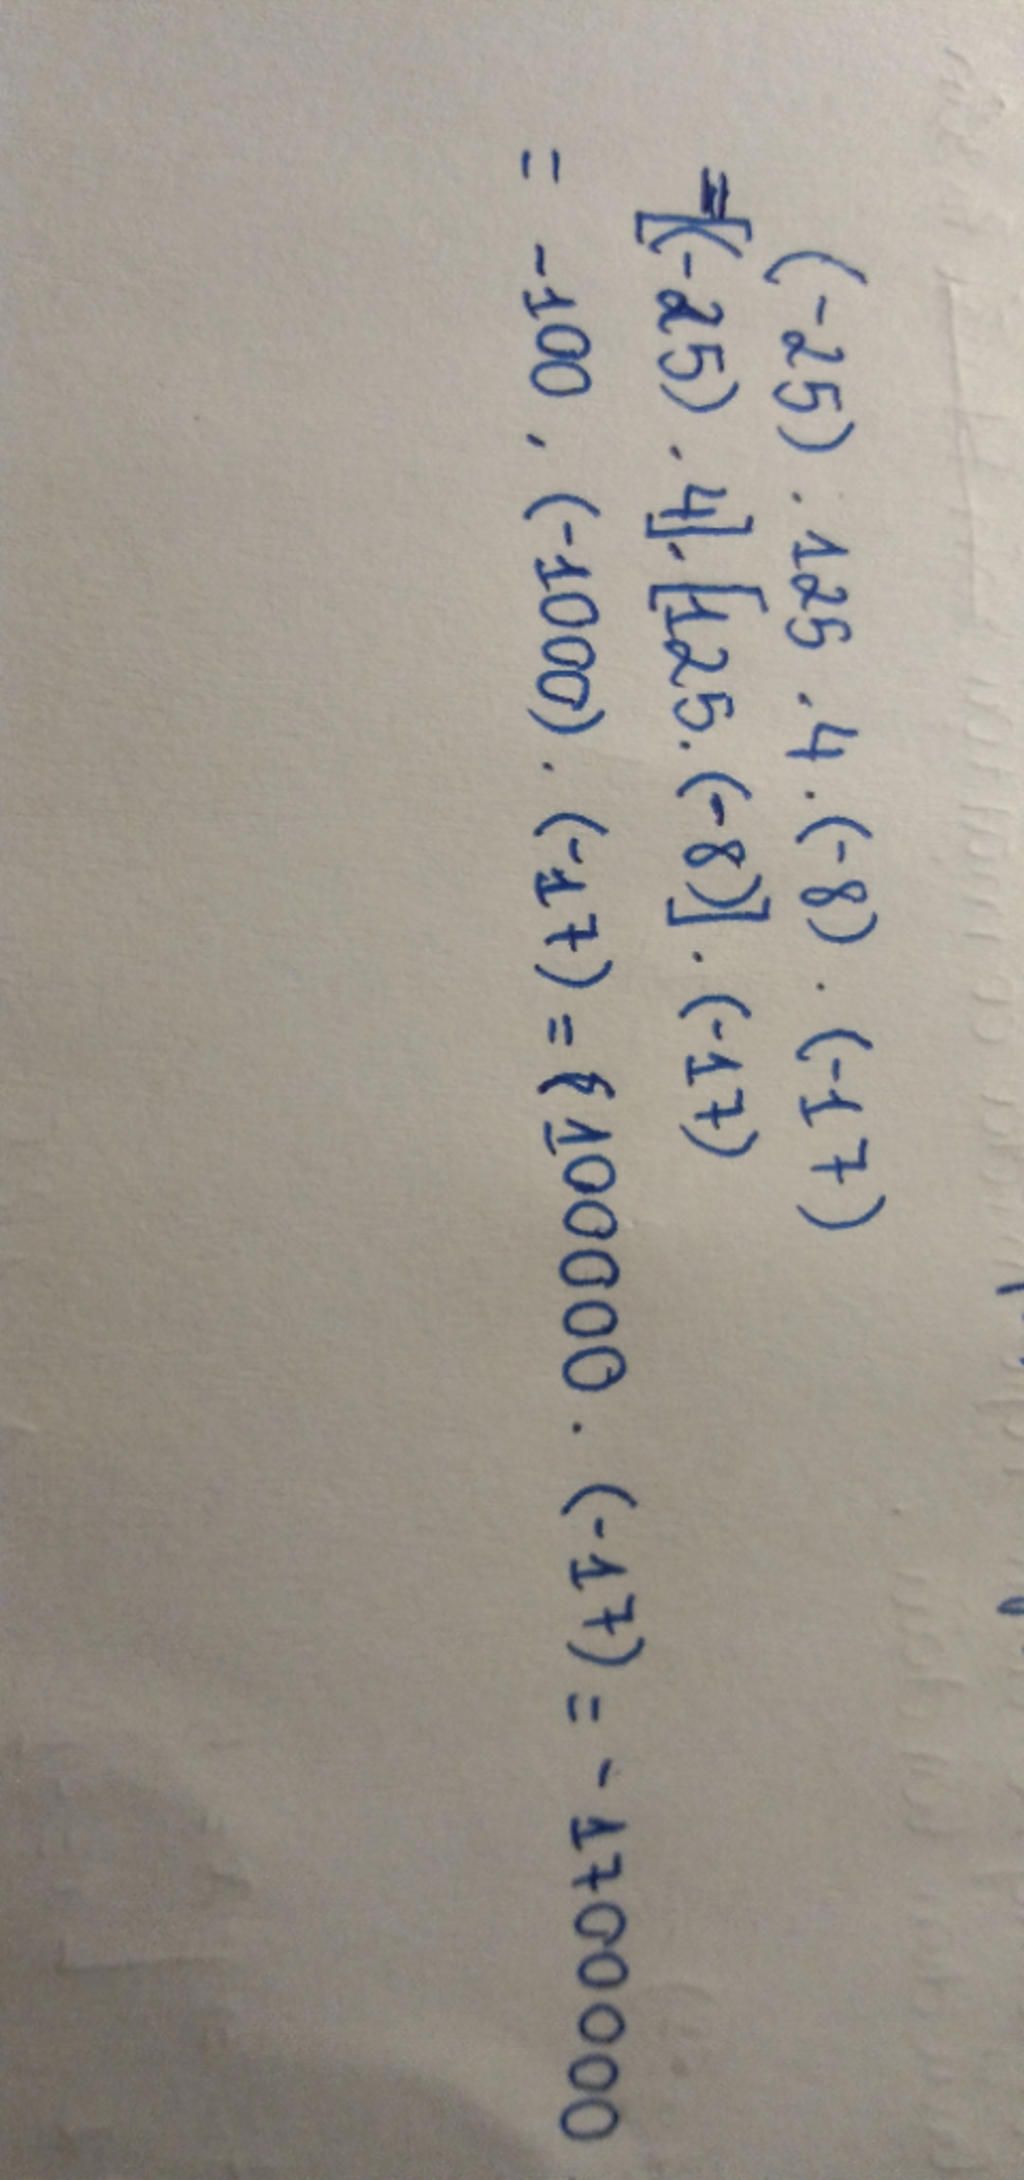 (-25) . 125 . 4 . (-8) . (-17)
= [(-25) . 4] . [125 . (-8)] . (-17)
= -100 . (-1000) . (-17) = 100000 . (-17) = -1700000